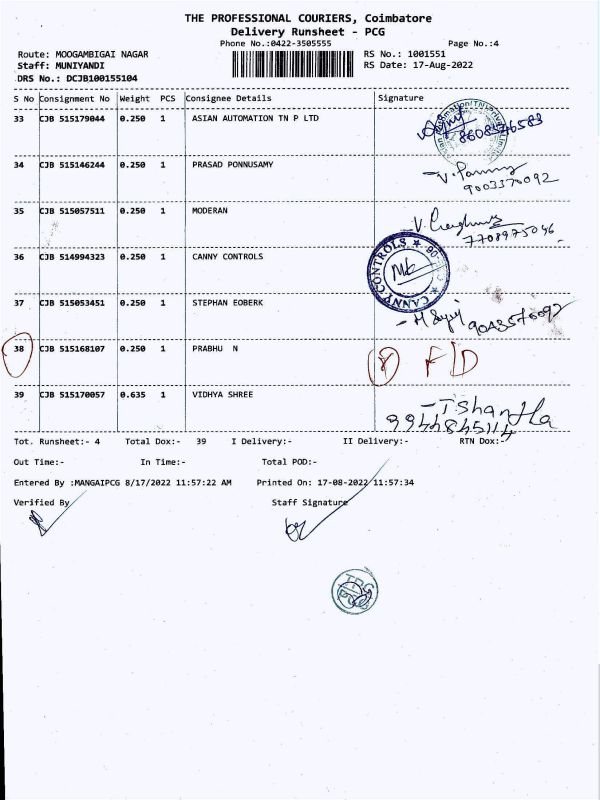 THE PROFESSIONAL COURIERS, Coimbatore
Delivery Runsheet - PCG
Phone No.:0422-3505555 Page No.:4
Route: MOOGAMBIGAI NAGAR RS No.: 1001551
Staff: MUNIYANDI RS Date: 17-Aug-2022
DRS No.: DCJB100155104
S No Consignment No Weight PCS Consignee Details Signature
33 CJB 515179044 0.250 1 ASIAN AUTOMATION TN P LTD 8608576583
34 CJB 515146244 0.250 1 PRASAD PONNUSAMY
9003370092
35 CJB 515057511 0.250 1 MODERAN
7708975046
36 CJB 514994323 0.250 1 CANNY CONTROLS CANNY CONTROLS
37 CJB 515053451 0.250 1 STEPHAN EOBERK 9043576092
38 CJB 515168107 0.250 1 PRABHU N 8 F/D
39 CJB 515170057 0.635 1 VIDHYA SHREE
Tot. Runsheet:- 4 Total Dox:- 39 I Delivery:- II Delivery:- RTN Dox:-
Out Time:- In Time:- Total POD:-
Entered By :MANGAIPCG 8/17/2022 11:57:22 AM Printed On: 17-08-2022 11:57:34
Verified By Staff Signature